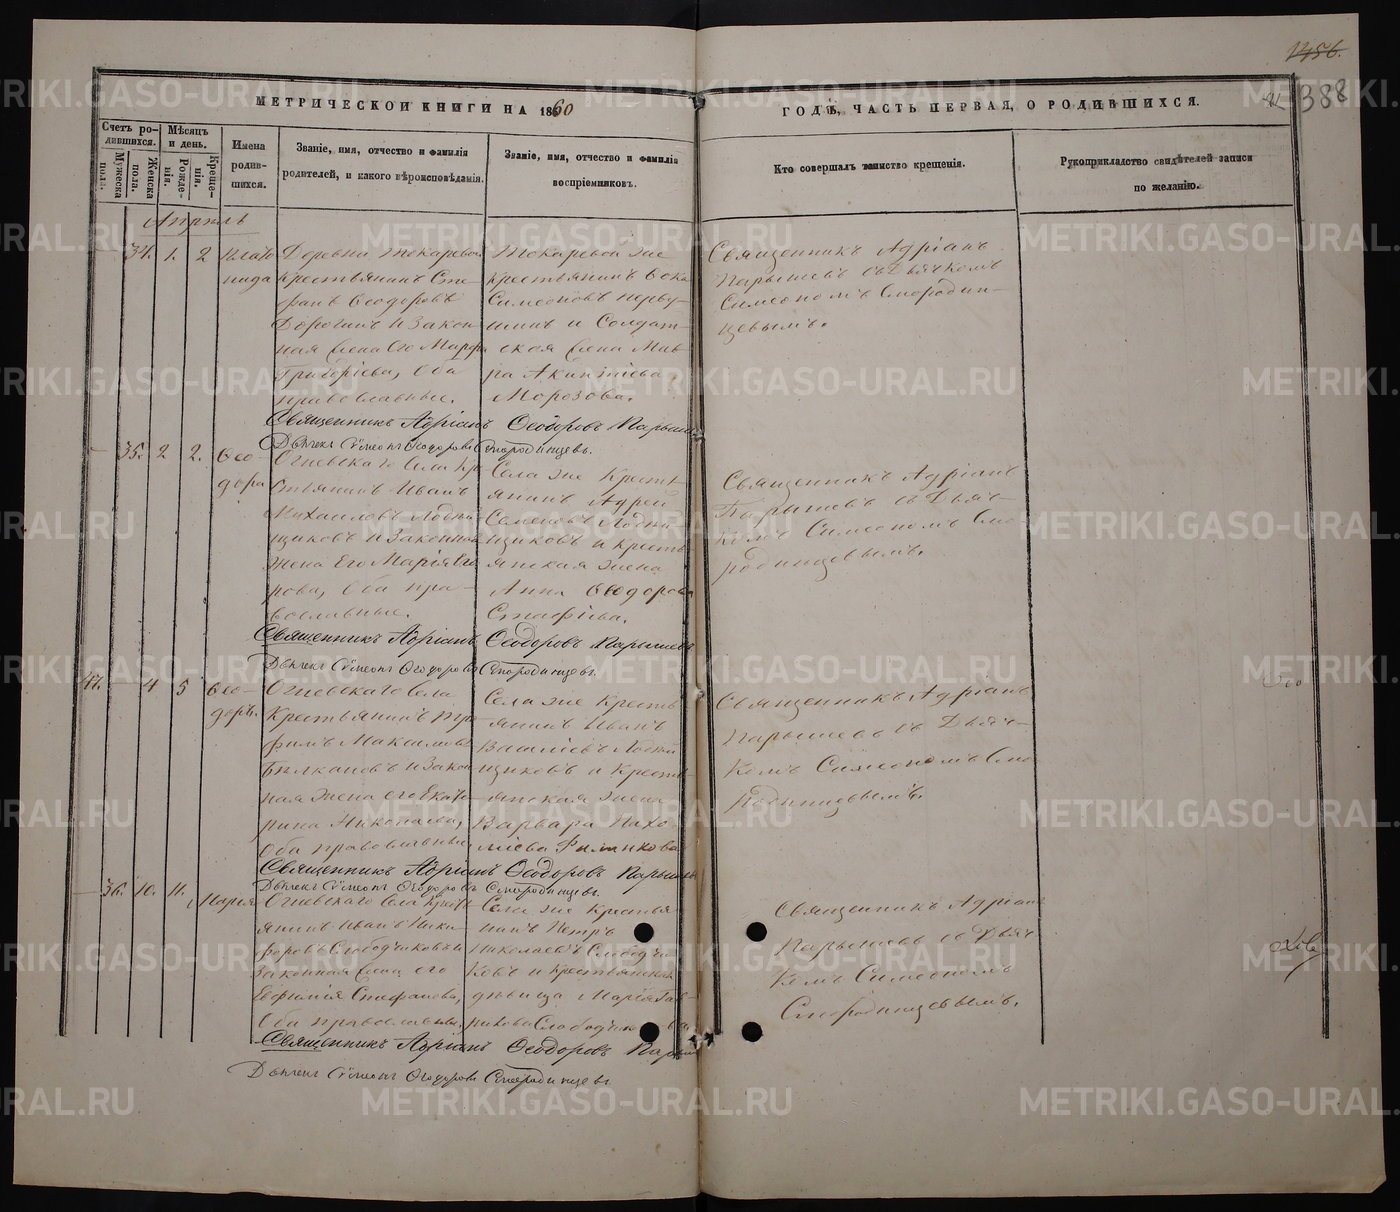 1456.
388
МЕТРИЧЕСКОЙ КНИГИ НА 1860
ГОДЪ, ЧАСТЬ ПЕРВАЯ, О РОДИВШИХСЯ.
Счетъ родившихся.
Мужеска пола.
Женска пола.
Мѣсяцъ и день.
Рожденія.
Крещенія.
Имена родившихся.
Званіе, имя, отчество и фамилія
родителей, и какого вѣроисповѣданія.
Званіе, имя, отчество и фамилія
воспріемниковъ.
Кто совершалъ таинство крещенія.
Рукоприкладство свидѣтелей записи
по желанію.
Апрѣль
34. 1. 2
Деревни Токаревой
крестьянинъ Сте-
фанъ Ѳеодоровъ
и закон-
ная жена его Марфа
Григоріева, оба
православные.
Токаревой же
крестьянинъ Ѳока
Симеоновъ Перву-
шинъ и солдат-
ская жена Мав-
ра Акинѳіева
Морозова.
Священникъ Адріанъ
Парышевъ съ Дьячкомъ
Симеономъ Смородин-
цевымъ.
Священникъ Адріанъ Ѳеодоровъ Парышевъ
Дьячекъ Сѵмеонъ Ѳеодоровъ Смородинцевъ.
35. 2 2. Ѳео-
дора
Огневскаго села кре-
стьянинъ Иванъ
Михаиловъ Лодни-
щиковъ и законная
жена его Марія
оба пра-
вославные.
Села же кресть-
янинъ Адрей
Семеновъ Лодни-
щиковъ и кресть-
янская жена
Анна Ѳеодорова
Священникъ Адріанъ
Парышевъ съ Дьяч-
комъ Симеономъ Смо-
родинцевымъ.
Священникъ Адріанъ Ѳеодоровъ Парышевъ
Дьячекъ Сѵмеонъ Ѳеодоровъ Смородинцевъ.
47. 4 5 Ѳео-
доръ.
Огневскаго села
крестьянинъ Тро-
фимъ Максимовъ
и закон-
ная жена его Екате-
рина Николаева,
оба православные
Села же кресть-
янинъ Иванъ
Василіевъ Лодни-
щиковъ и кресть-
янская жена
Варвара Пахо-
міева
Священникъ Адріанъ
Парышевъ съ Дьяч-
комъ Симеономъ Смо-
родинцевымъ.
Священникъ Адріанъ Ѳеодоровъ Парышевъ
Дьячекъ Сѵмеонъ Ѳеодоровъ Смородинцевъ.
36. 10. 11. Марія
Огневскаго села кресть-
янинъ Иванъ Ники-
форовъ Слободчиковъ и
законная жена его
Евфимія Стефанова,
оба православные,
Села же крестья-
нинъ Петръ
Николаевъ Слободчи-
ковъ и крестьянская
дѣвица Марія
Слободчикова
Священникъ Адріанъ
Парышевъ съ Дьяч-
комъ Симеономъ
Смородинцевымъ.
Священникъ Адріанъ Ѳеодоровъ Парышевъ
Дьячекъ Сѵмеонъ Ѳеодоровъ Смородинцевъ
METRIKI.GASO-URAL.RU